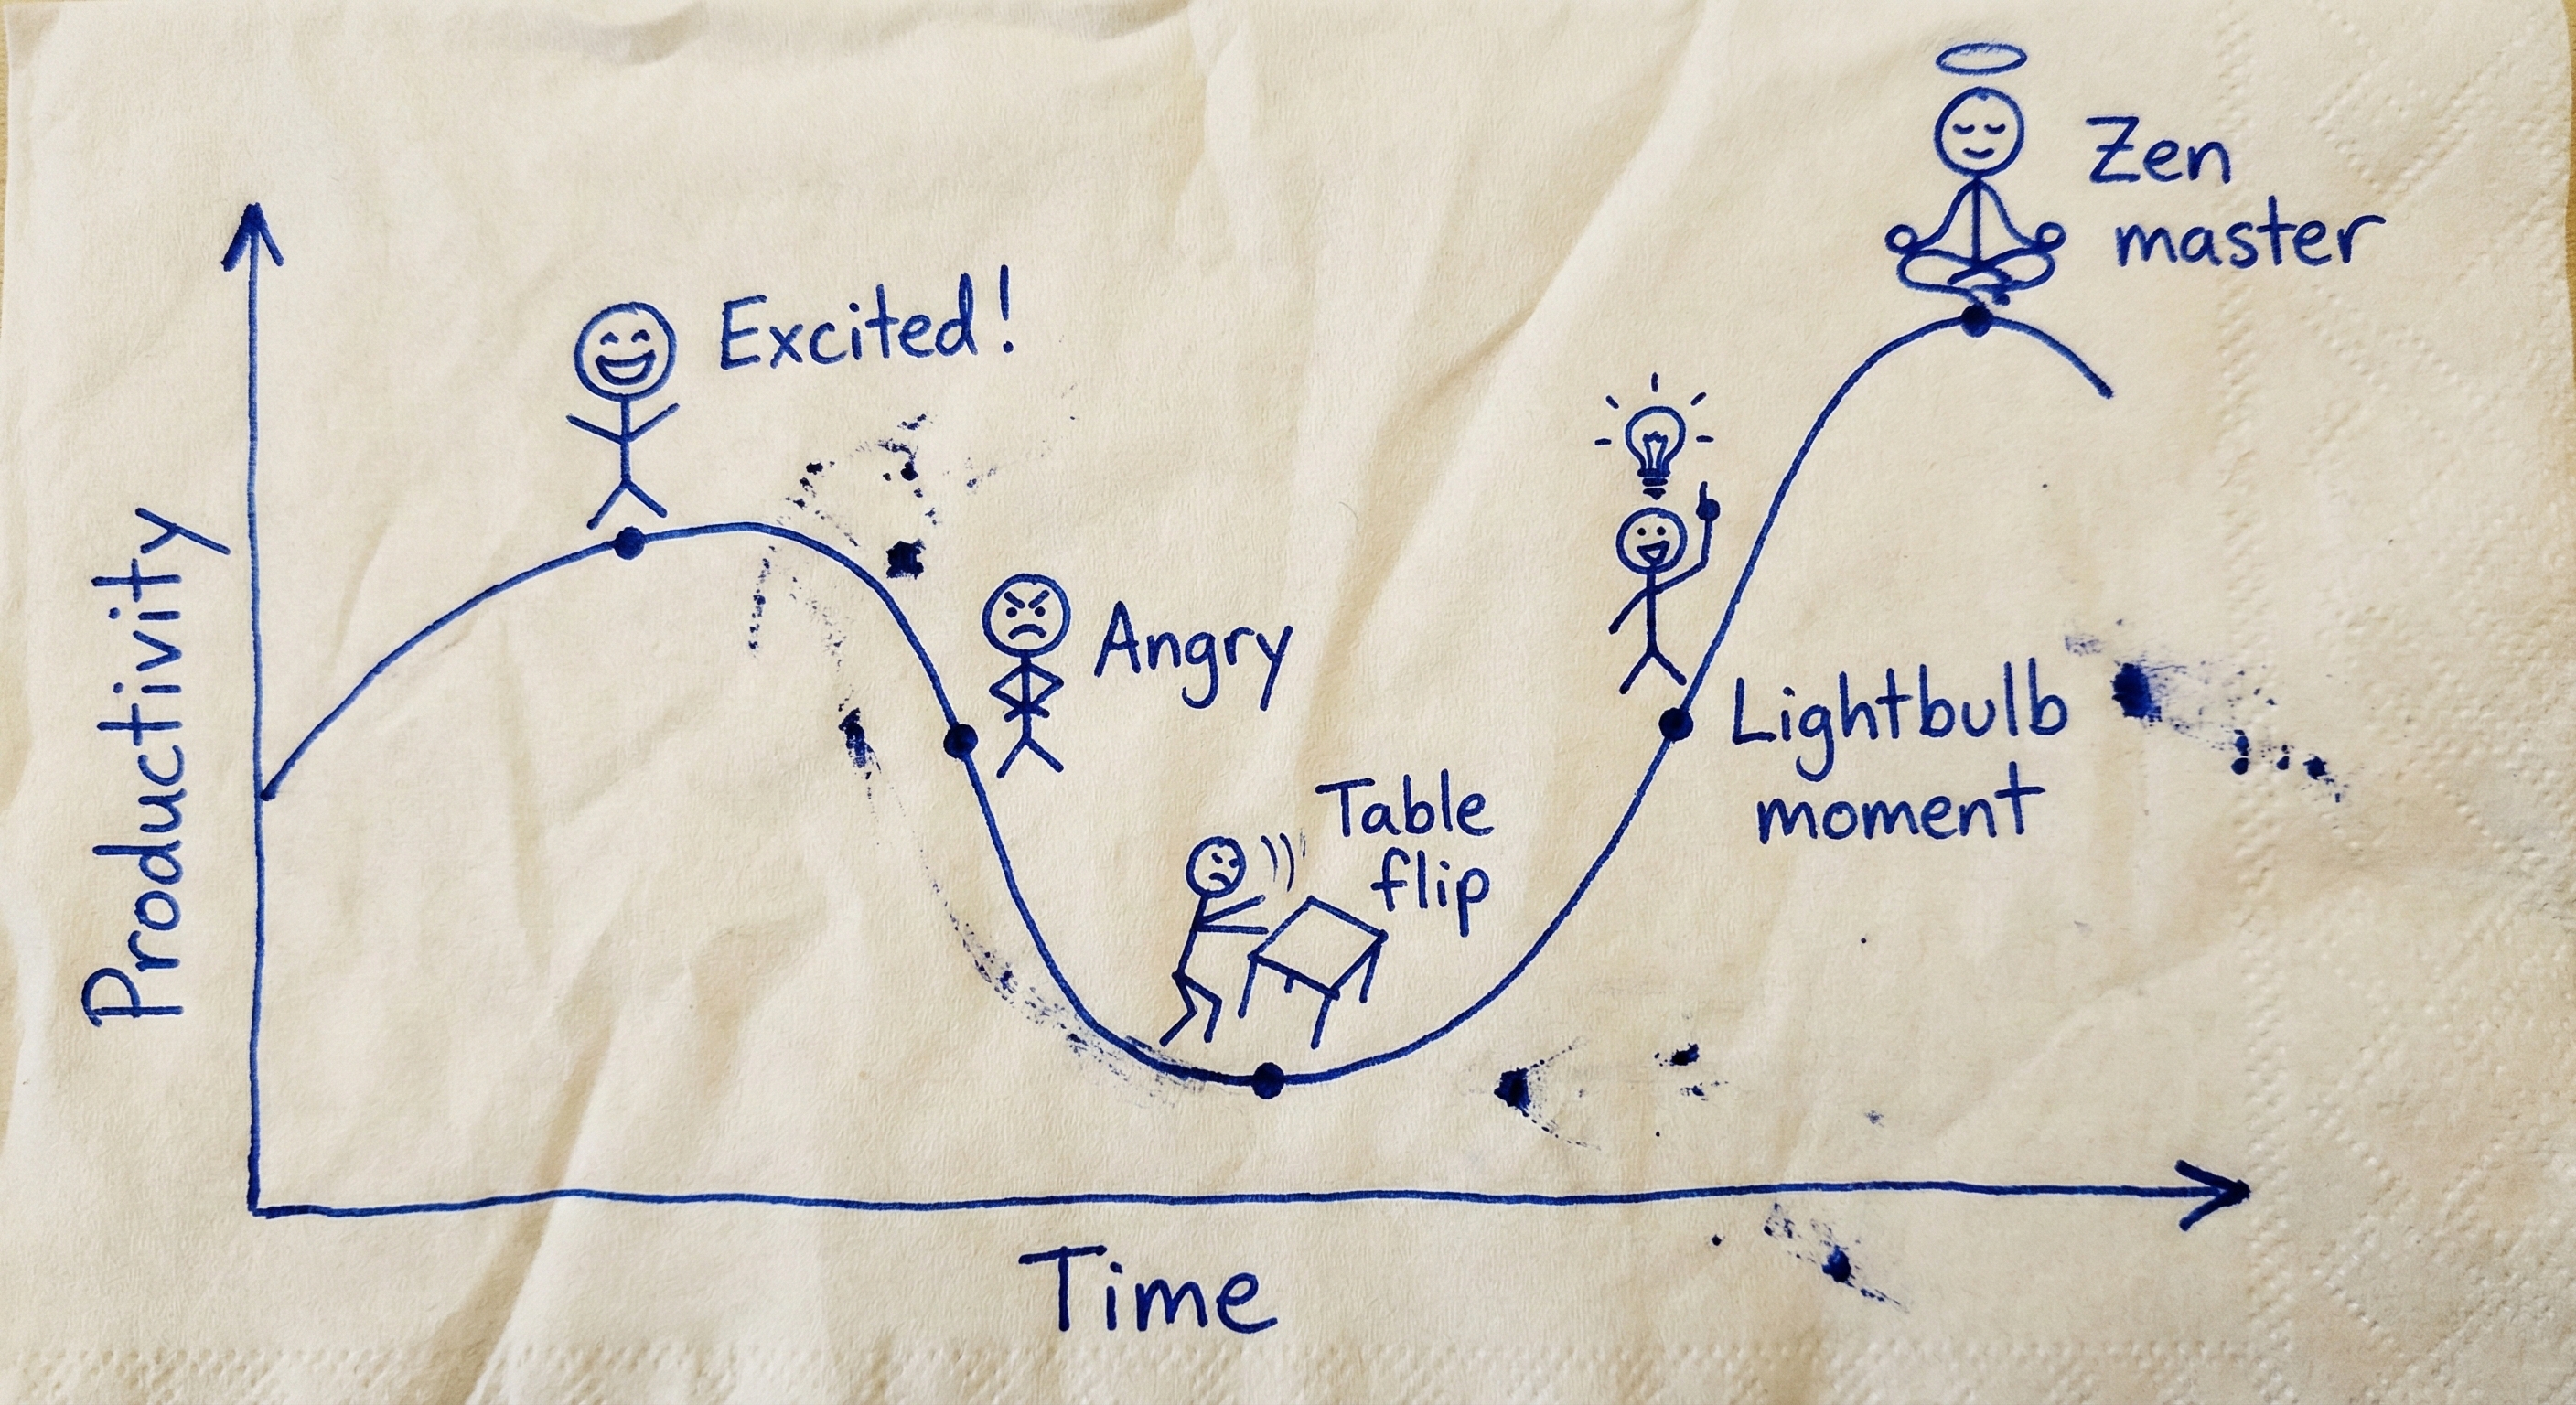 Zen
master
Excited!
Productivity
Angry
Lightbulb
moment
Table
flip
Time